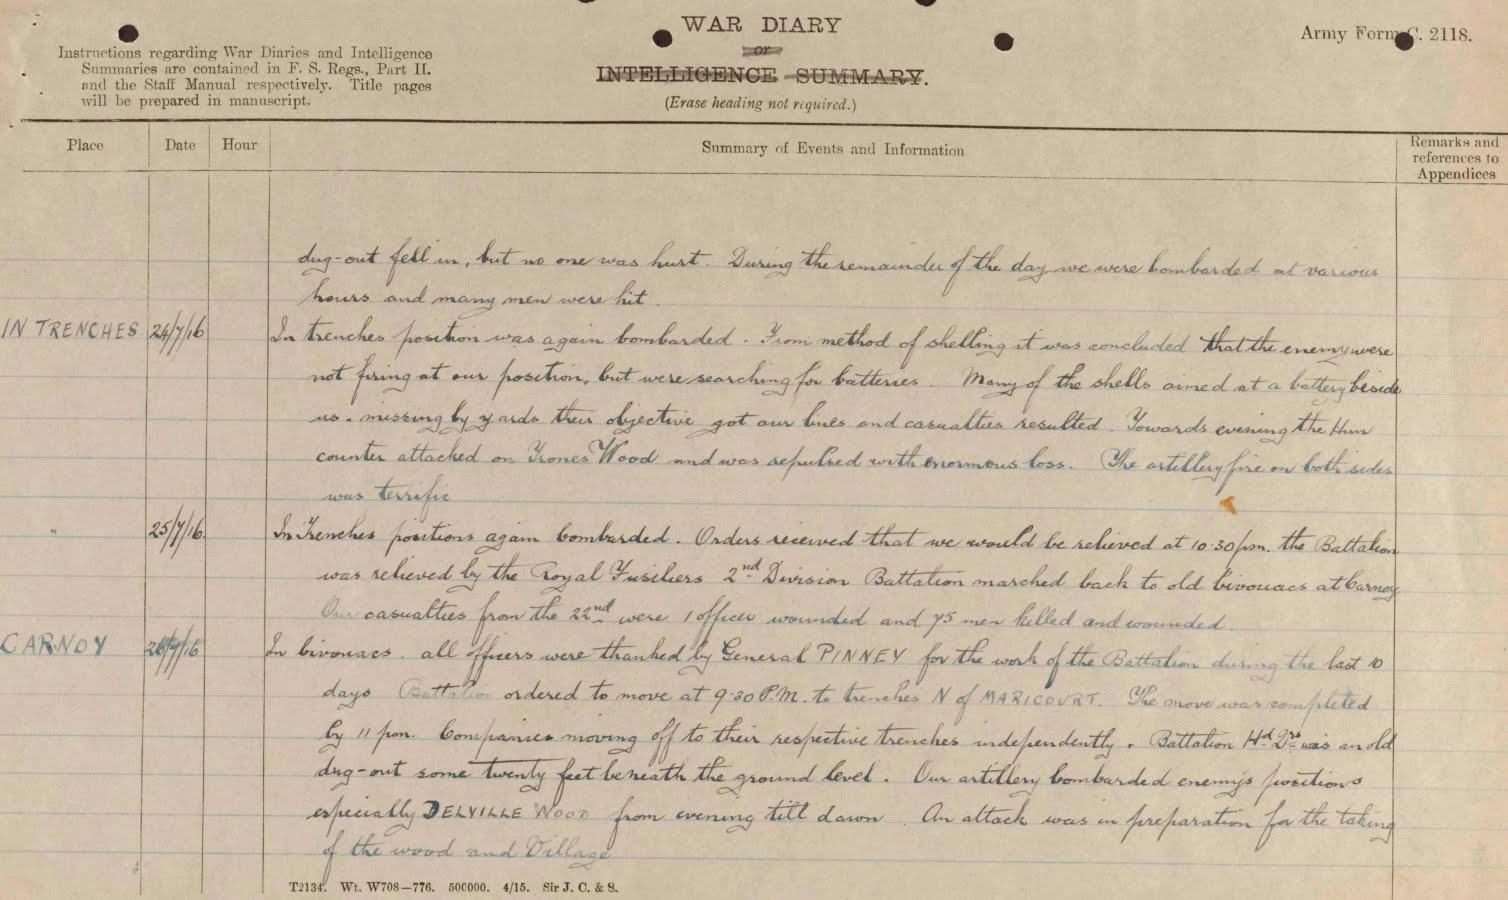 WAR DIARY
or
INTELLIGENCE SUMMARY.
(Erase heading not required.)
Army Form C. 2118.
Instructions regarding War Diaries and Intelligence
Summaries are contained in F. S. Regs., Part II.
and the Staff Manual respectively. Title pages
will be prepared in manuscript.
Place Date Hour Summary of Events and Information Remarks and
references to
Appendices
dug-out fell in, but no one was hurt. During the remainder of the day we were bombarded at various
hours and many men were hit.
IN TRENCHES 24/7/16 In trenches position was again bombarded. From method of shelling it was concluded that the enemy were
not firing at our position, but were searching for batteries. Many of the shells aimed at a battery beside
us. missing by yards their objective got our lines and casualties resulted. Towards evening the Hun
counter attacked on Trones Wood and was repulsed with enormous loss. The artillery fire on both sides
was terrific
" 25/7/16 In Trenches positions again bombarded. Orders received that we would be relieved at 10.30 pm. the Battalion
was relieved by the Royal Fusiliers 2nd Division Battalion marched back to old bivouacs at Carnoy
Our casualties from the 22nd were 1 officer wounded and 75 men killed and wounded.
CARNOY 26/7/16 In bivouacs. all officers were thanked by General PINNEY for the work of the Battalion during the last 10
days Battalion ordered to move at 9.30 P.M. to trenches N of MARICOURT. The move was completed
by 11 pm. Companies moving off to their respective trenches independently. Battalion Hd Qrs was an old
dug-out some twenty feet beneath the ground level. Our artillery bombarded enemy's positions
especially DELVILLE WOOD from evening till dawn. An attack was in preparation for the taking
of the wood and Village
T2134. Wt. W708—776. 500000. 4/15. Sir J. C. & S.